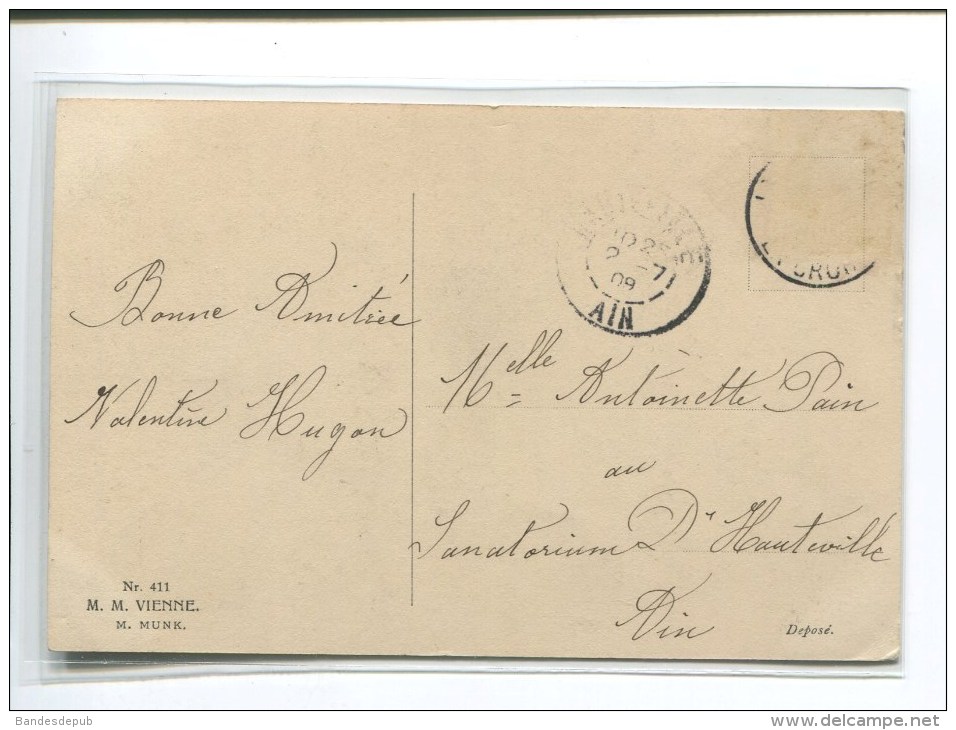 Bonne Amitiée
Valentine Hugon
Melle Antoinette Pain
au
Sanatorium D'Hauteville
Ain
HAUTEVILLE
25
09
AIN
Nr. 411
M. M. VIENNE.
M. MUNK.
Deposé.
Bandesdepub
www.delcampe.net